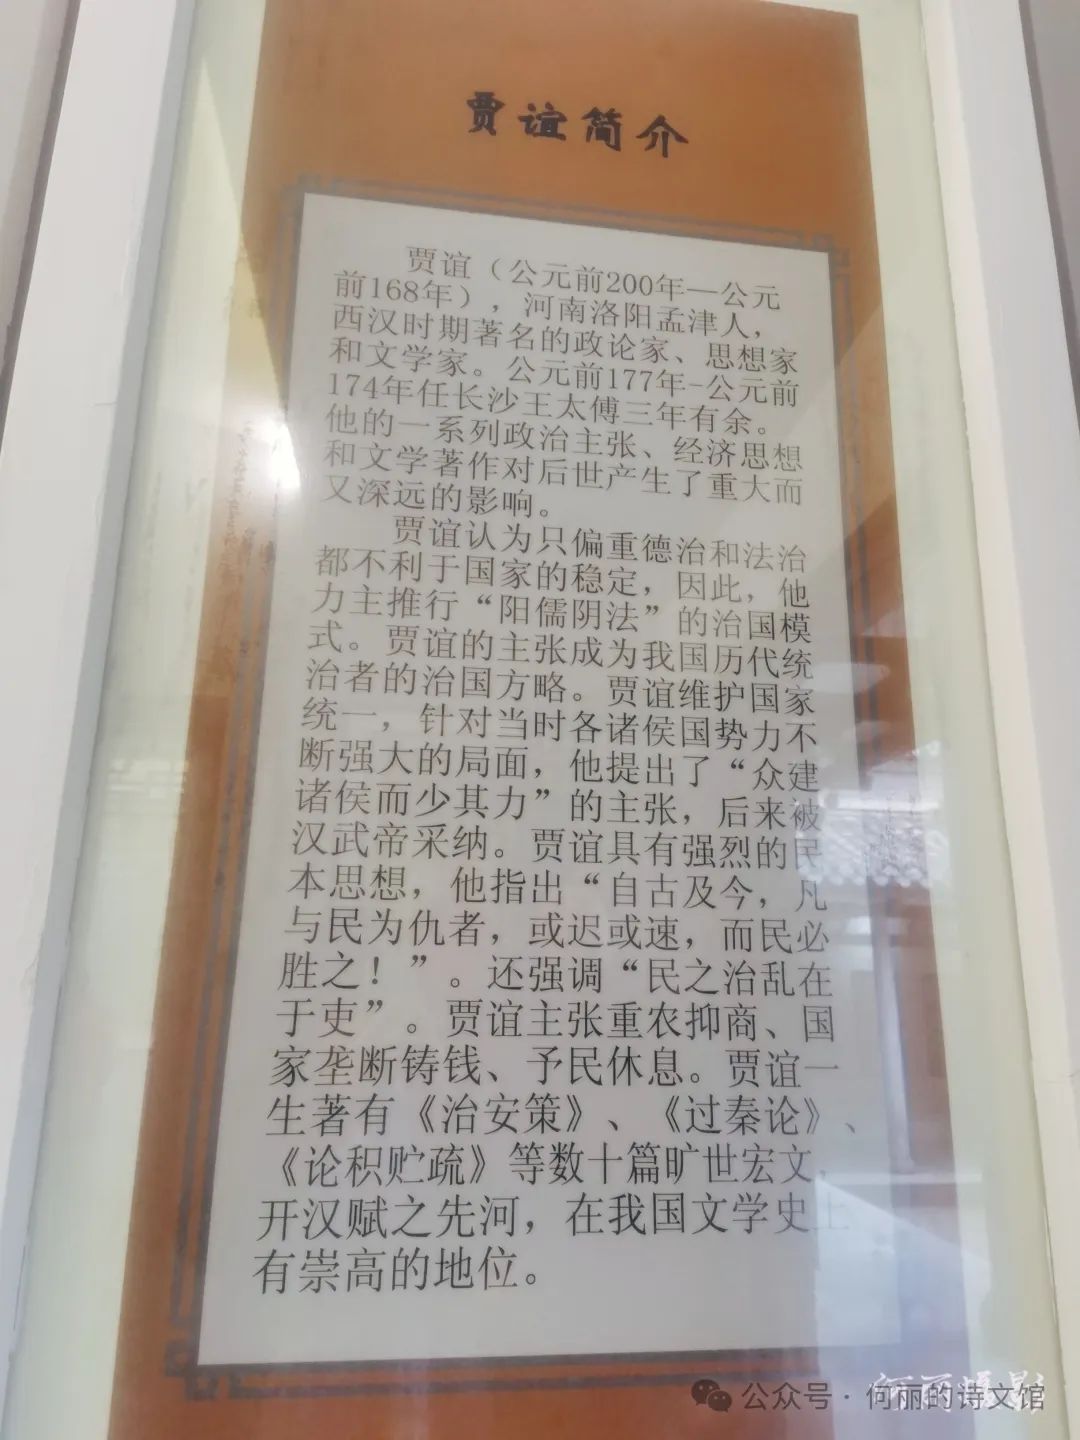 贾谊简介
贾谊（公元前200年—公元
前168年），河南洛阳孟津人，
西汉时期著名的政论家、思想家
和文学家。公元前177年-公元前
174年任长沙王太傅三年有余。
他的一系列政治主张、经济思想
和文学著作对后世产生了重大而
又深远的影响。
贾谊认为只偏重德治和法治
都不利于国家的稳定，因此，他
力主推行“阳儒阴法”的治国模
式。贾谊的主张成为我国历代统
治者的治国方略。贾谊维护国家
统一，针对当时各诸侯国势力不
断强大的局面，他提出了“众建
诸侯而少其力”的主张，后来被
汉武帝采纳。贾谊具有强烈的民
本思想，他指出“自古及今，凡
与民为仇者，或迟或速，而民必
胜之！”。还强调“民之治乱在
于吏”。贾谊主张重农抑商、国
家垄断铸钱、予民休息。贾谊一
生著有《治安策》、《过秦论》、
《论积贮疏》等数十篇旷世宏文，
开汉赋之先河，在我国文学史上
有崇高的地位。
何丽摄影
公众号·何丽的诗文馆